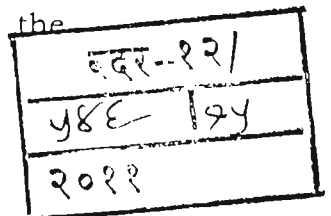 the
बदर--१२/
५४६
२०११